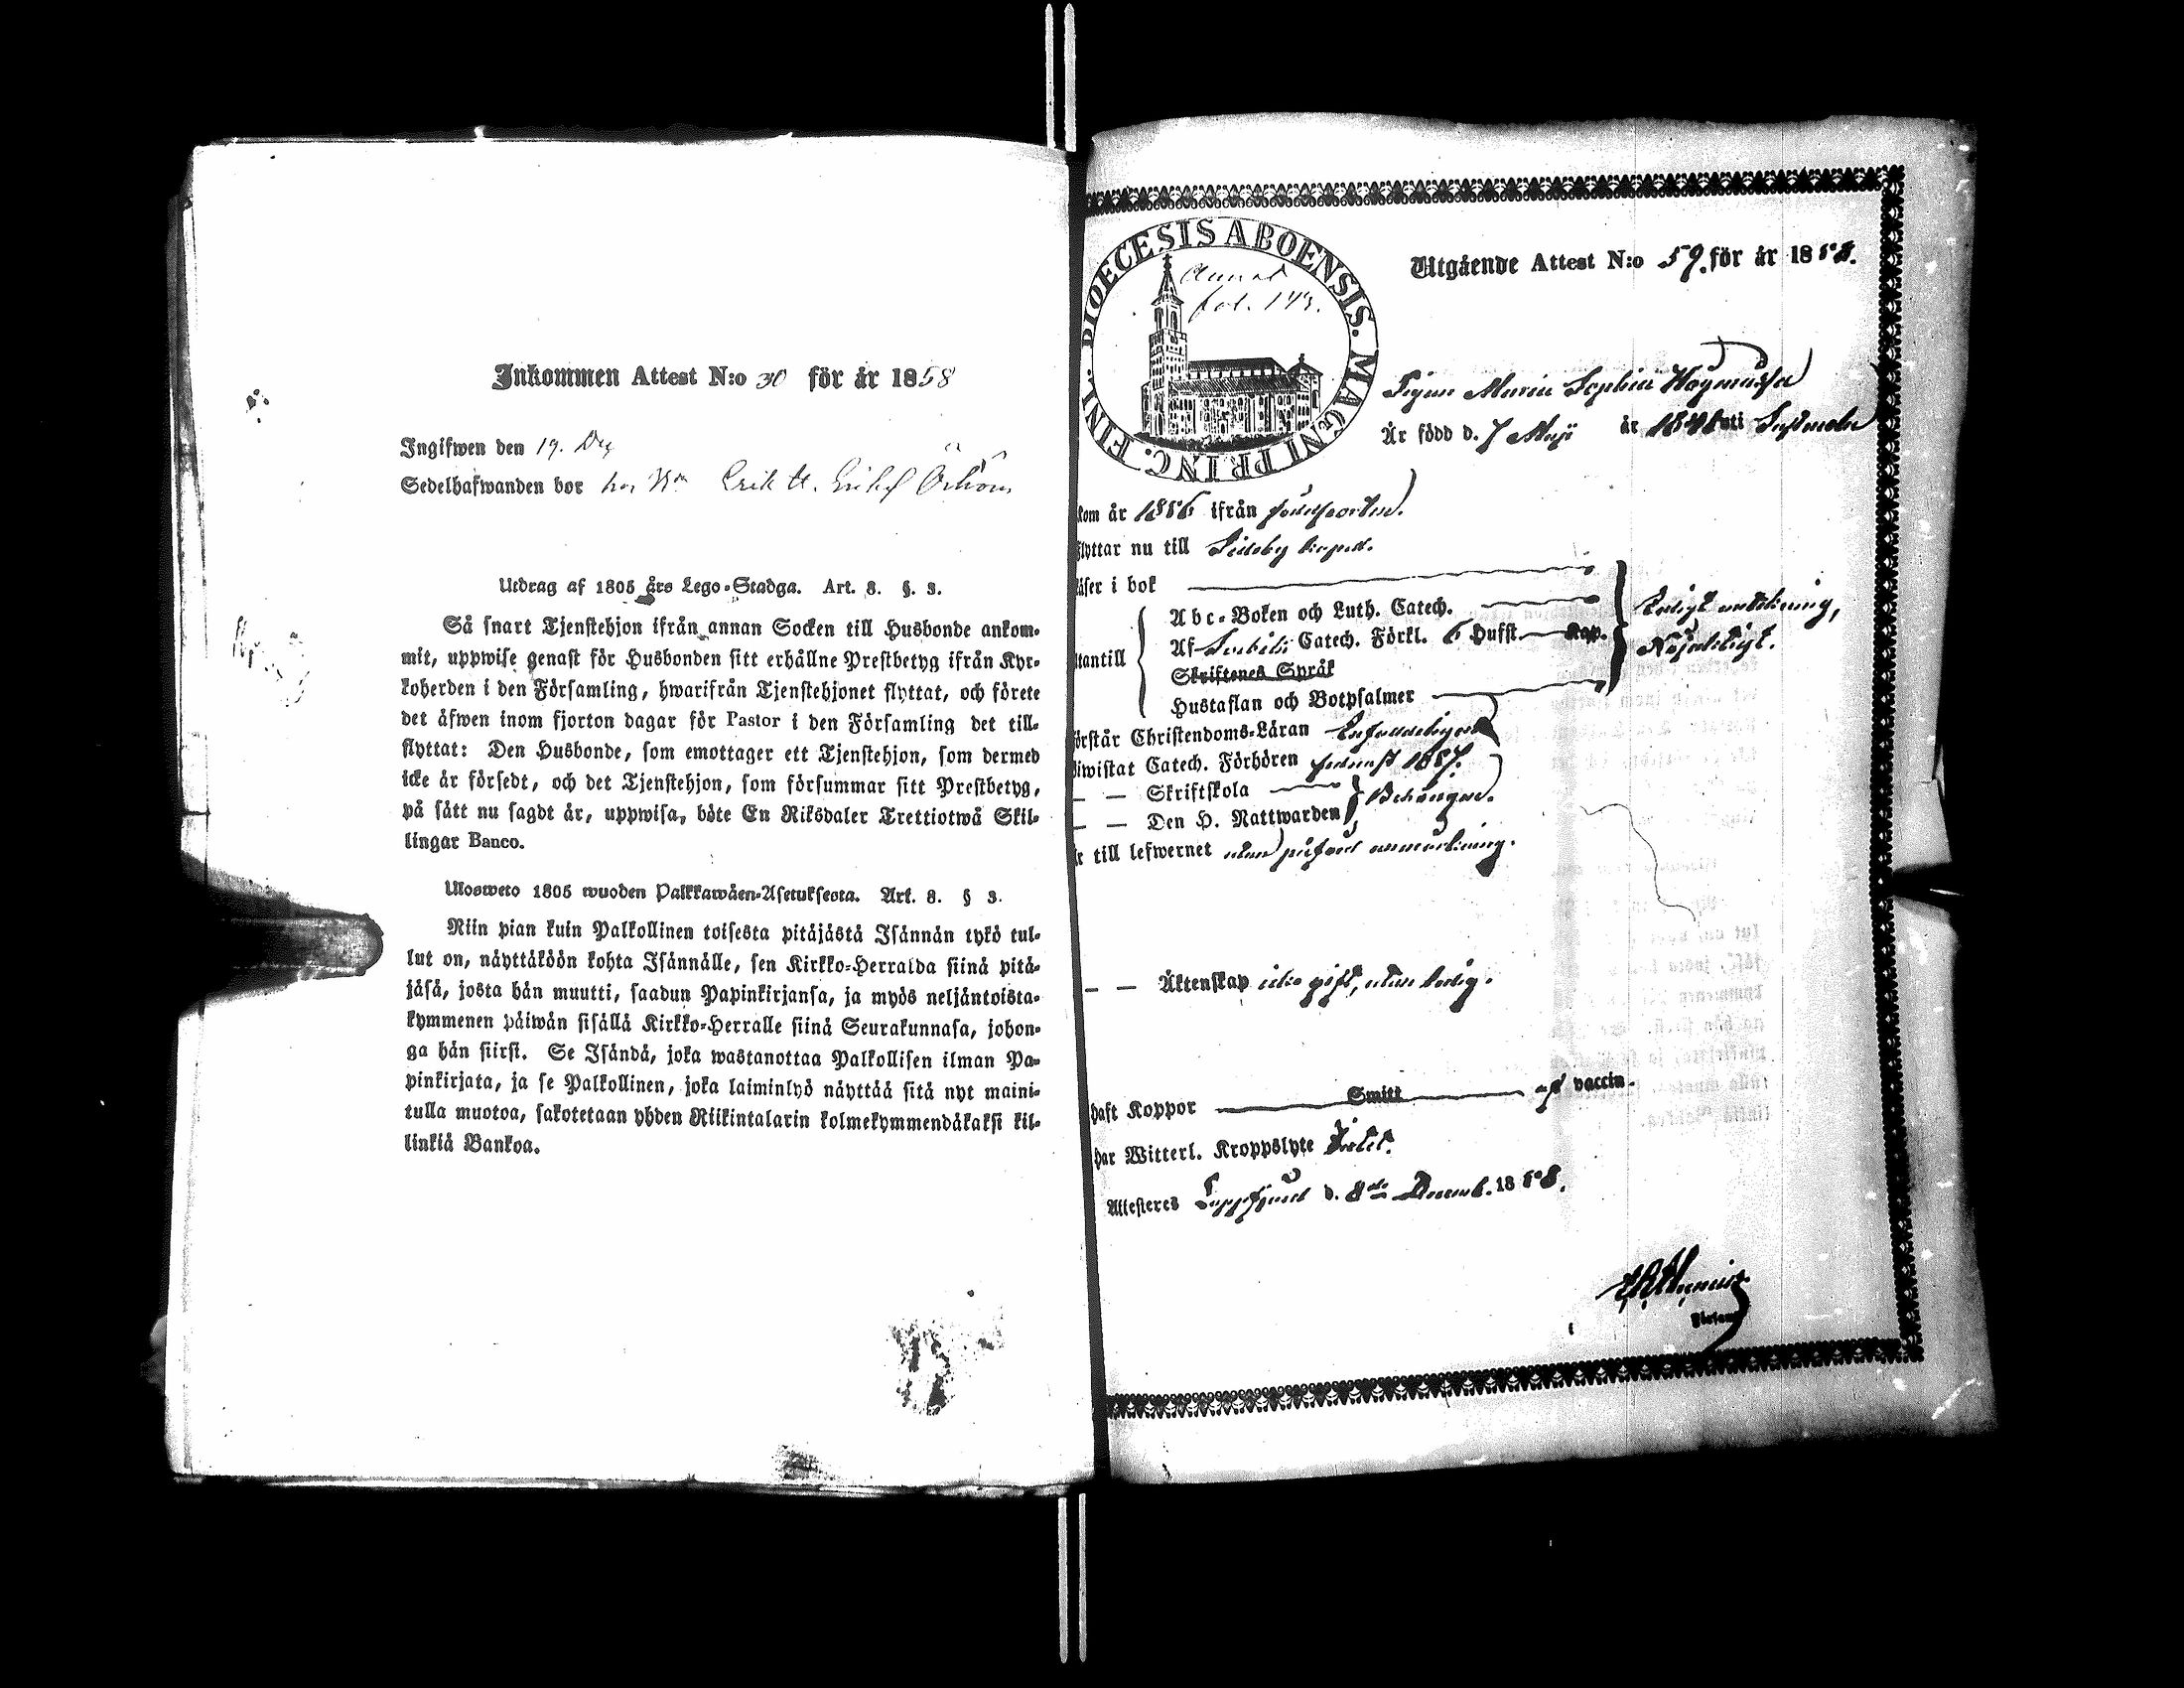 Inkommen Attest N:o 30 för år 1858
Ingifwen den 19. Dec
Sedelhafwanden bor hos Erik
Utdrag af 1805 års Lego-Stadga. Art. 8. §. 3.
Så snart Tjenstehjon ifrån annan Socken till Husbonde ankom-
mit, uppwise genast för Husbonden sitt erhållne Prestbetyg ifrån Kyr-
koherden i den Församling, hwarifrån Tjenstehjonet flyttat, och förete
det äfwen inom fjorton dagar för Pastor i den Församling det till-
flyttat: Den Husbonde, som emottager ett Tjenstehjon, som dermed
icke är försedt, och det Tjenstehjon, som försummar sitt Prestbetyg,
på sätt nu sagdt är, uppwisa, böte En Riksdaler Trettiotwå Skil-
lingar Banco.
Ulosweto 1805 wuoden Palkkawäen-Asetuksesta. Art. 8. § 3.
Niin pian kuin Palkollinen toisesta pitäjästä Isännän tykö tul-
lut on, näyttäköön kohta Isännälle, sen Kirkko-Herralda siinä pitä-
jäsä, josta hän muutti, saadun Papinkirjansa, ja myös neljäntoista-
kymmenen päiwän sisällä Kirkko-Herralle siinä Seurakunnasa, johon-
ga hän siirsi. Se Isändä, joka wastanottaa Palkollisen ilman Pa-
pinkirjata, ja se Palkollinen, joka laiminlyö näyttää sitä nyt maini-
tulla muotoa, sakotetaan yhden Riikintalarin kolmekymmendäkaksi kil-
linkiä Bankoa.
DIOECESIS ABOENSIS. MAGNI PRINC. FINL.
Annot
fol. 143.
Utgående Attest N:o 59. för år 1858.
Pigan Maria Sophia
Är född d. 7 Maji år uti
kom år 1856 ifrån födelseorten.
flyttar nu till Sideby kapell.
läser i bok
Abc-Boken och Luth. Catech.
Af Svebilii Catech. Förkl. 6 Hufst. Kap.
Skriftenes Språk
Hustaflan och Botpsalmer
utantill
Enligt anteckning,
Nöjaktigt.
örstår Christendoms-Läran Enfaldeligen
Biwistat Catech. Förhören senast 1857.
— — Skriftskola
— — Den H. Nattwarden } Behörigen.
Är till lefwernet utan påförd anmärkning.
— — Äktenskap icke gift, utan ledig.
haft Koppor Smitt vaccin.
har Witterl. Kroppslyte Intet.
Attesteres Lappfjerd d. 8de Decemb. 1858.